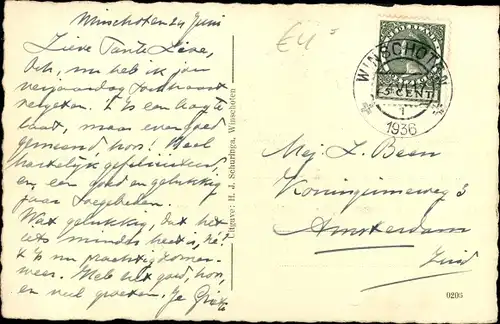 Winschoten 24 Juni
Lieve Tante Live,
Och, nu heb ik jou
verjaardag
vergeten. 't Is een beetje
laat, maar evengoed
gemeend hoor! Heel
hartelijk gefeliciteerd
en een goed en gelukkig
jaar toegebeden.
Wat gelukkig, dat het
iets minder heet is, hè!
't Is nu prachtig zomer-
weer. Heb het goed, hoor,
en veel groeten. Je
Uitgave: H. J. Schuringa, Winschoten
NEDERLAND
5 CENT
WINSCHOTEN
1936
Mej. L. Been
Koninginneweg 3
Amsterdam
Zuid
0203